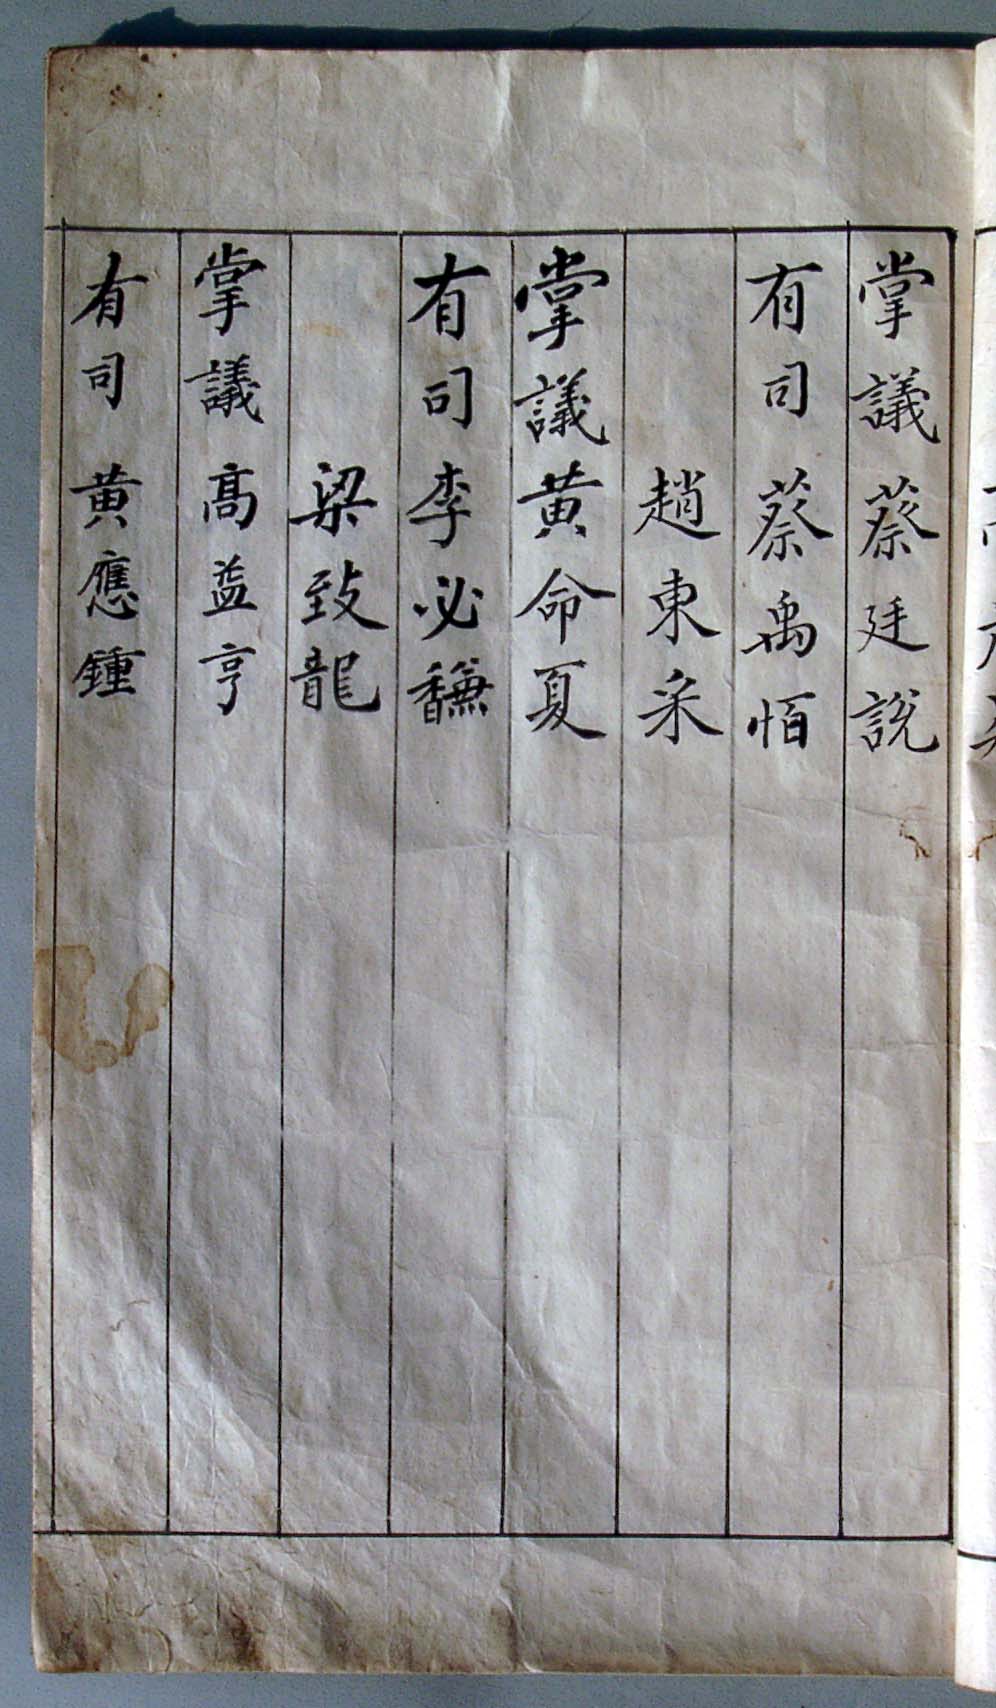 掌議 蔡廷說
有司 蔡禹恒
趙東采
掌議 黃命夏
有司 李必馦
梁致龍
掌議 高益亨
有司 黃應鍾